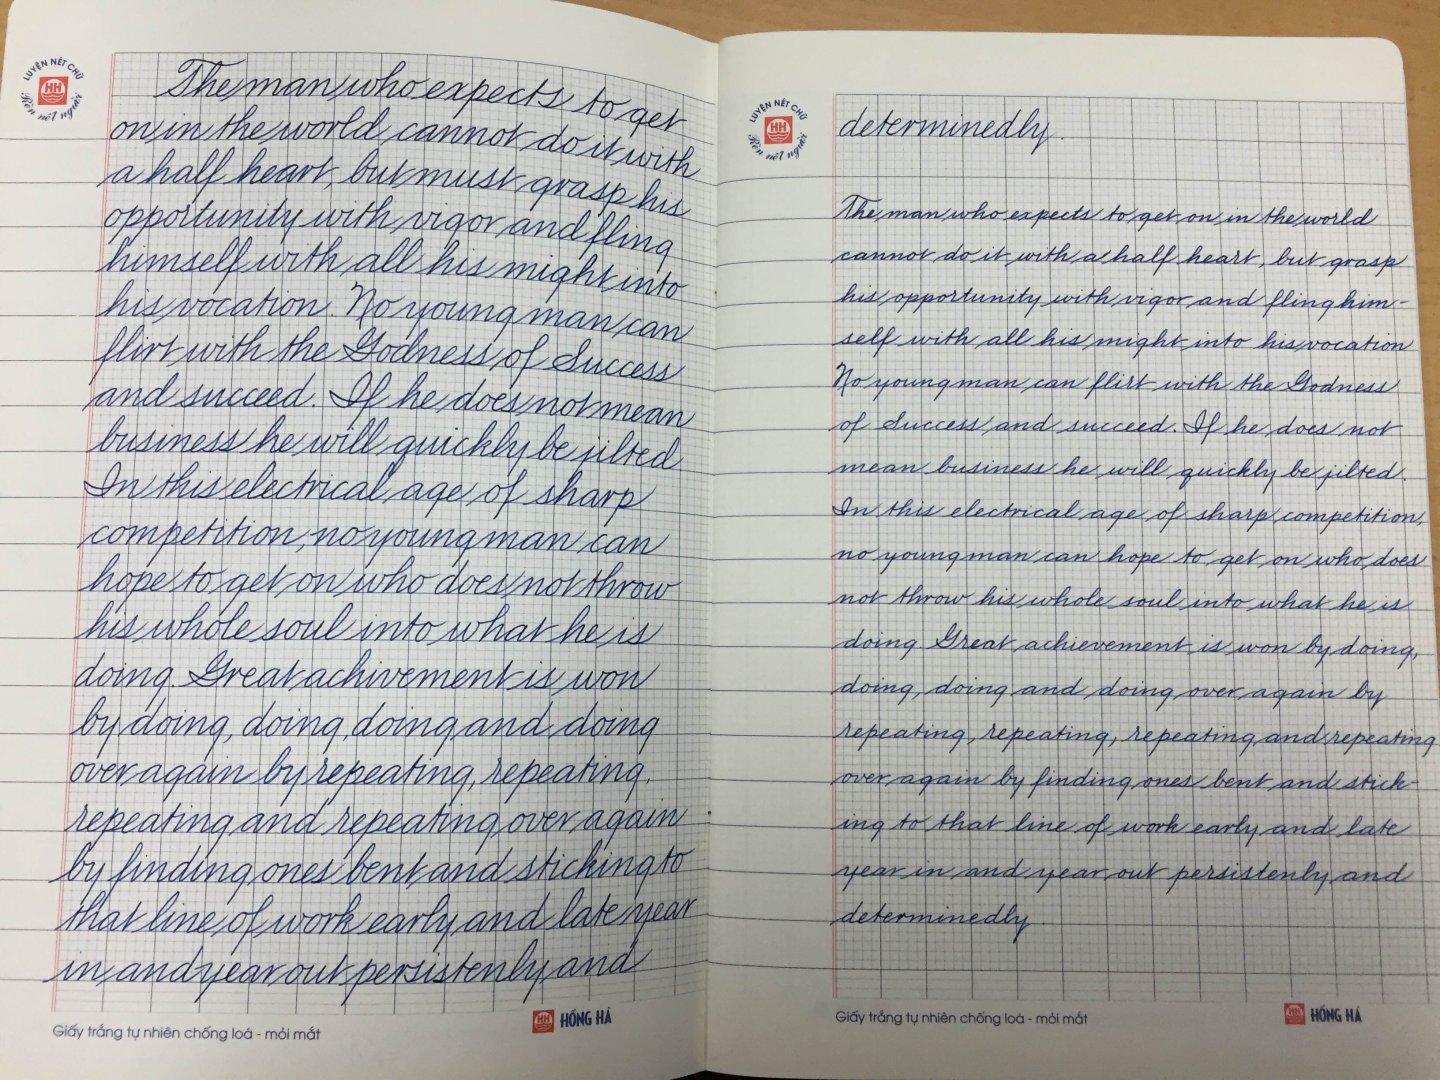 LUYỆN NÉT CHỮ
HH
Rèn nết người
The man who expects to get
on in the world, cannot do it with
a half heart, but must grasp his
opportunity with vigor and fling
himself with all his might into
his vocation. No young man can
flirt with the Godness of Success
and succeed. If he does not mean
business he will quickly be jilted
In this electrical age of sharp
competition, no young man can
hope to get on who does not throw
his whole soul into what he is
doing. Great achivement is won
by doing, doing, doing and doing
over again by repeating, repeating,
repeating and repeating over again
by finding ones bent and sticking to
that line of work early and late year
in and year out persistenly and
Giấy trắng tự nhiên chống loá - mỏi mắt
HH HỒNG HÀ
LUYỆN NÉT CHỮ
HH
Rèn nết người
determinedly.
The man who expects to get on in the world
cannot do it with a half heart, but grasp
his opportunity with vigor and fling him-
self with all his might into his vocation
No young man can flirt with the Godness
of Success and succeed. If he does not
mean business he will quickly be jilted.
In this electrical age of sharp competition,
no young man can hope to get on who does
not throw his whole soul into what he is
doing. Great achievement is won by doing,
doing, doing and doing over again by
repeating, repeating, repeating and repeating
over again by finding ones bent and stick-
ing to that line of work early and late
year in and year out persistenly and
determinedly
Giấy trắng tự nhiên chống loá - mỏi mắt
HH HỒNG HÀ